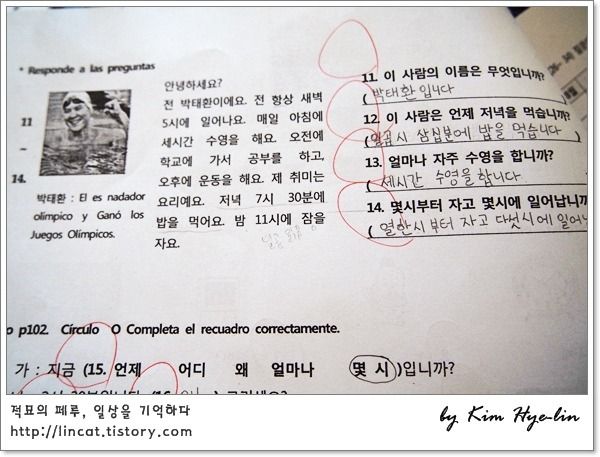 * Responde a las preguntas
11
–
14.
박태환 : El es nadador
olímpico y Ganó los
Juegos Olímpicos.
안녕하세요?
전 박태환이에요. 전 항상 새벽
5시에 일어나요. 매일 아침에
세시간 수영을 해요. 오전에
학교에 가서 공부를 하고,
오후에 운동을 해요. 제 취미는
요리예요. 저녁 7시 30분에
밥을 먹어요. 밤 11시에 잠을
자요.
11. 이 사람의 이름은 무엇입니까?
( 박태환입니다
12. 이 사람은 언제 저녁을 먹습니까?
(일곱시 삼십분에 밥을 먹습니다
13. 얼마나 자주 수영을 합니까?
( 세시간 수영을 합니다
14. 몇시부터 자고 몇시에 일어납니까
( 열한시부터 자고 다섯시에 일어
o p102. Círculo O Completa el recuadro correctamente.
가 : 지금 (15. 언제 어디 왜 얼마나 몇 시 )입니까?
적묘의 페루, 일상을 기억하다
http://lincat.tistory.com
by Kim Hye-lin